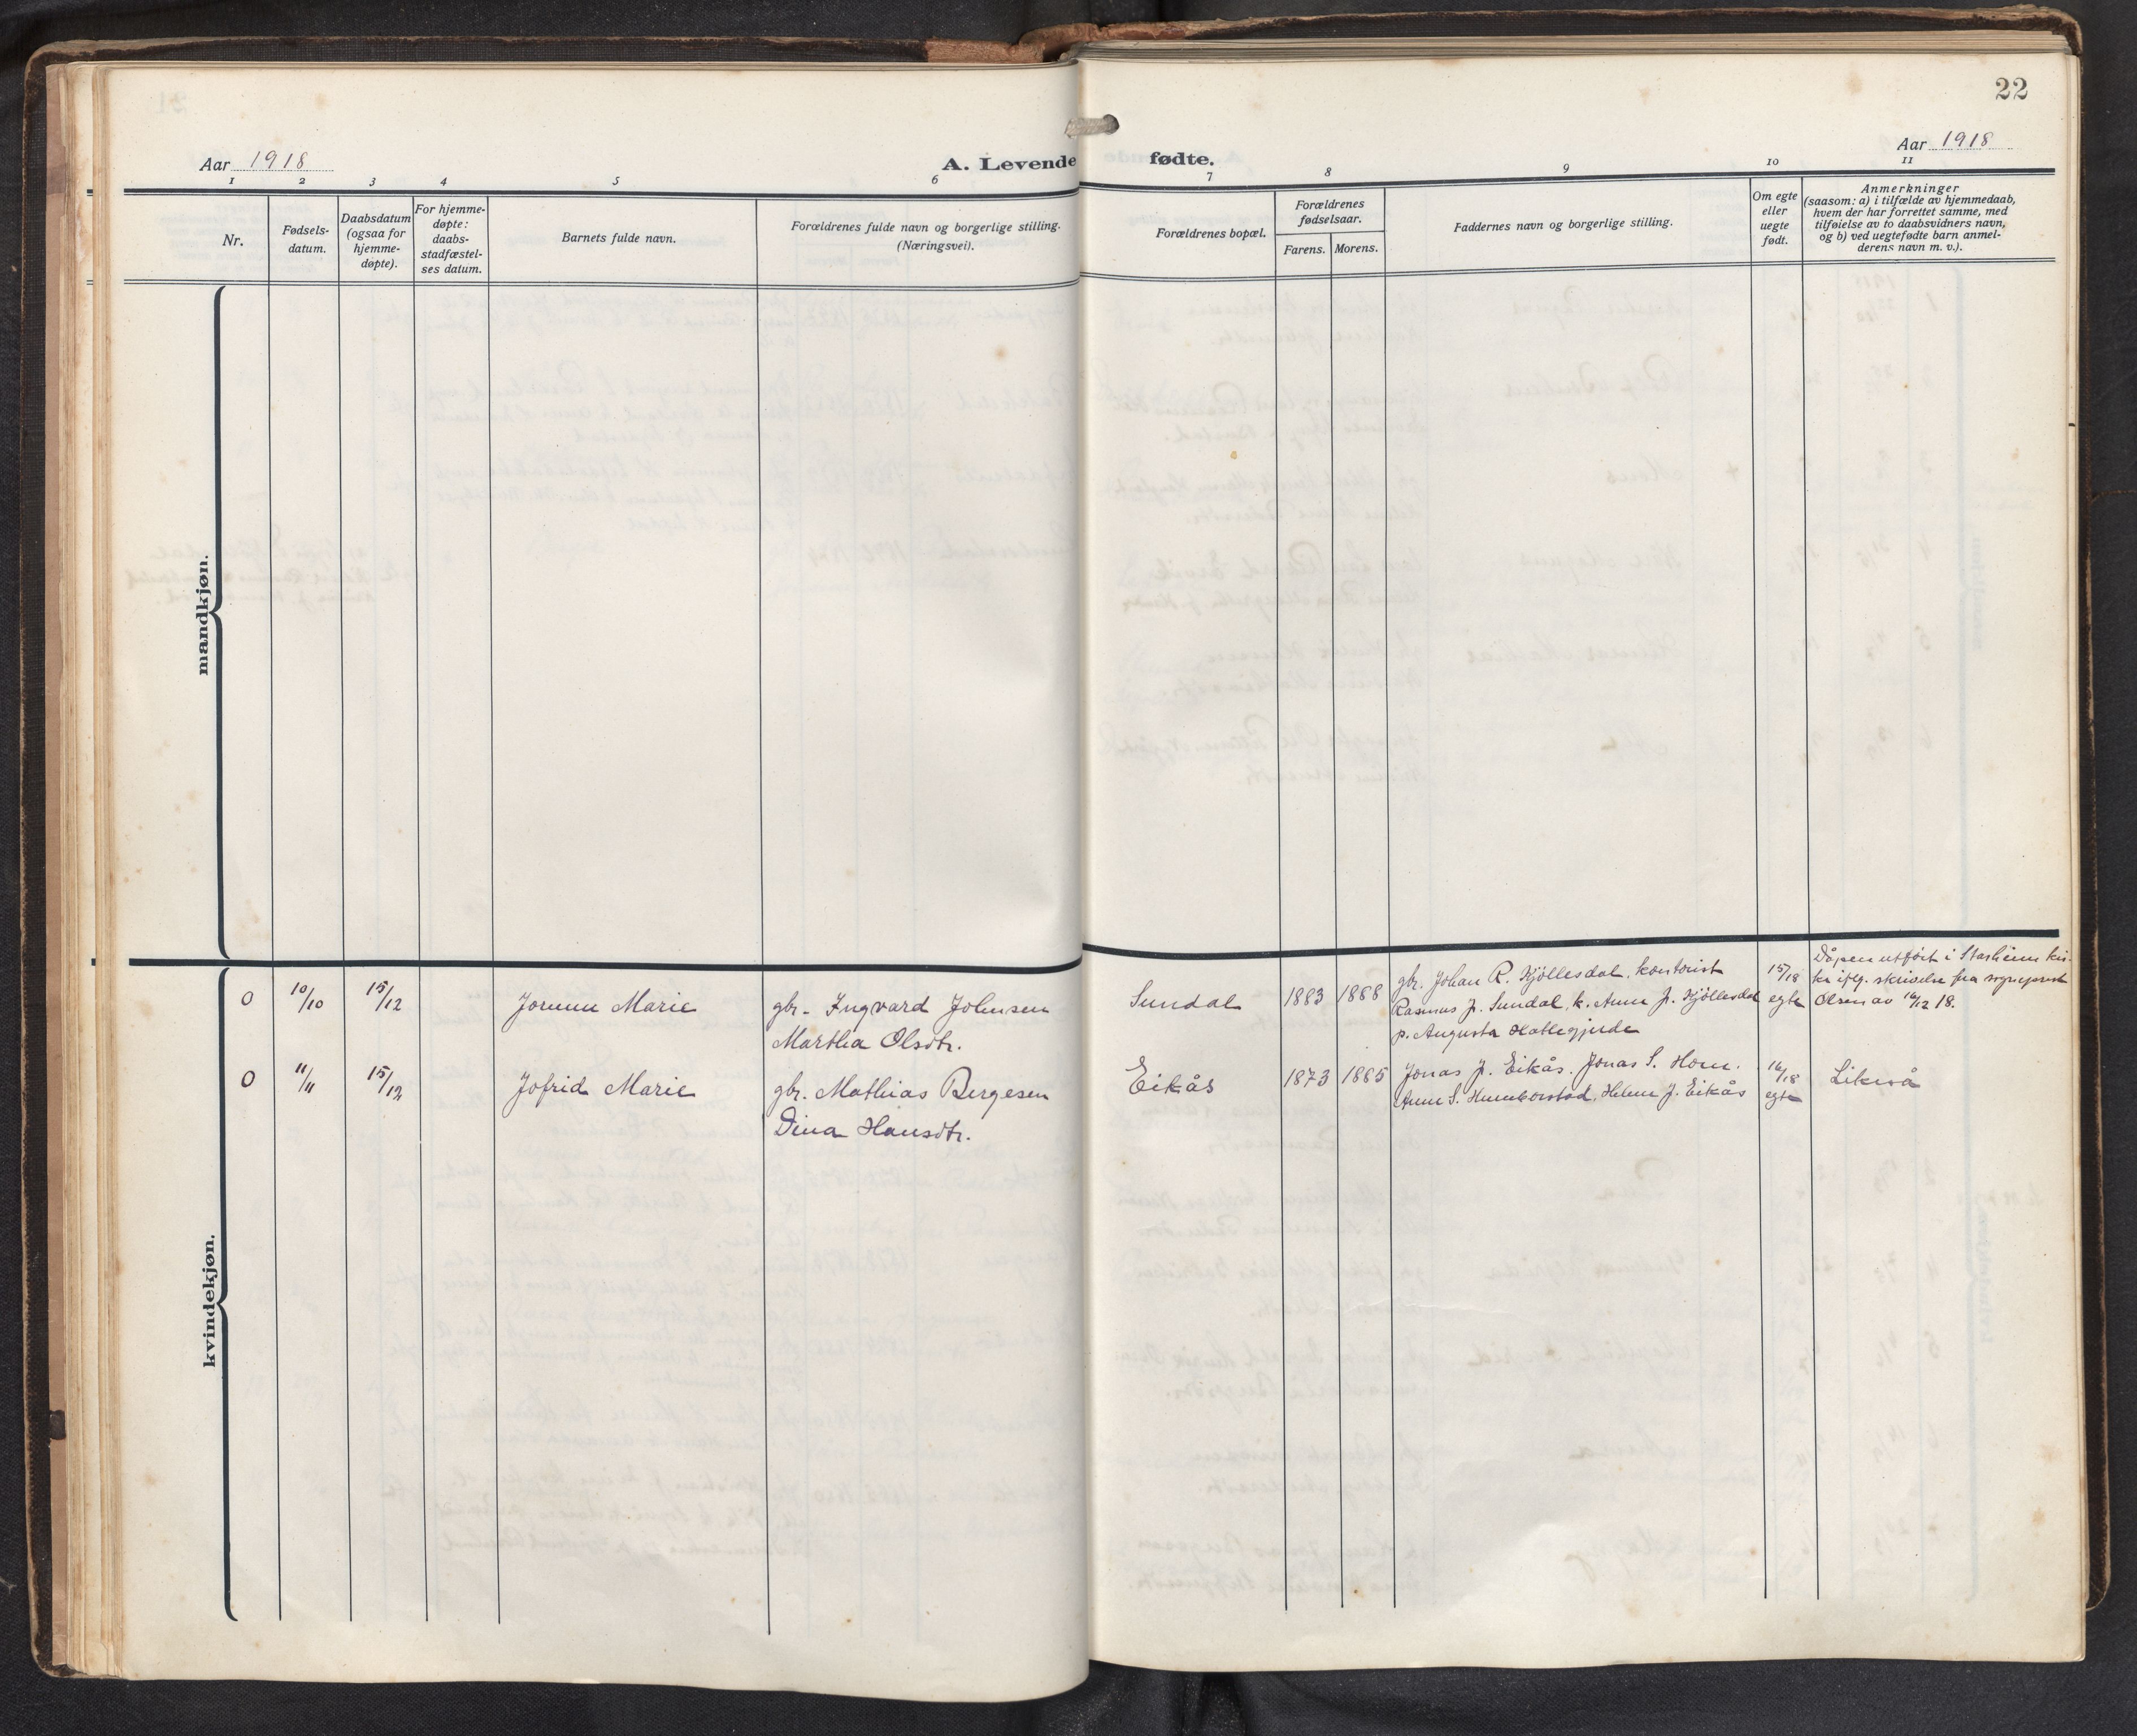 22
Aar 1918
A. Levende fødte.
Aar 1918
1 2 3 4 5 6 7 8 9 10 11
Nr.
Fødsels-
datum.
Daabsdatum
(ogsaa for
hjemme-
døpte).
For hjemme-
døpte:
daabs-
stadfæstel-
ses datum.
Barnets fulde navn.
Forældrenes fulde navn og borgerlige stilling.
(Næringsvei).
Forældrenes bopæl.
Forældrenes
fødselsaar.
Farens. Morens.
Faddernes navn og borgerlige stilling.
Om egte
eller
uegte
født.
Anmerkninger
(saasom: a) i tilfælde av hjemmedaab,
hvem der har forrettet samme, med
tilføielse av to daabsvidners navn,
og b) ved uegtefødte barn anmel-
derens navn m. v.).
mandkjøn.
kvindekjøn.
0 10/10 15/12 Jorunn Marie
gbr. Ingvard Johnsen
Martha Olsdtr.
Sundal 1883 1888
gbr. Johan R. Hjøllesdal, kontorist
Rasmus J. Sundal, k. Anna J. Hjøllesdal
p. Augusta Hatlegjerde
15/18
egte
Dåpen utført i Starheim kir-
ke iflg. skrivelse fra sogneprest
Olsen av 16/12 18.
0 11/11 15/12 Jofrid Marie
gbr. Mathias Børgesen
Dina Hansdtr.
Eikås 1873 1885
Jonas J. Eikås, Jonas S. Hom.
Anna S. Humborstad, Helene J. Eikås
16/18
egte
Likeså